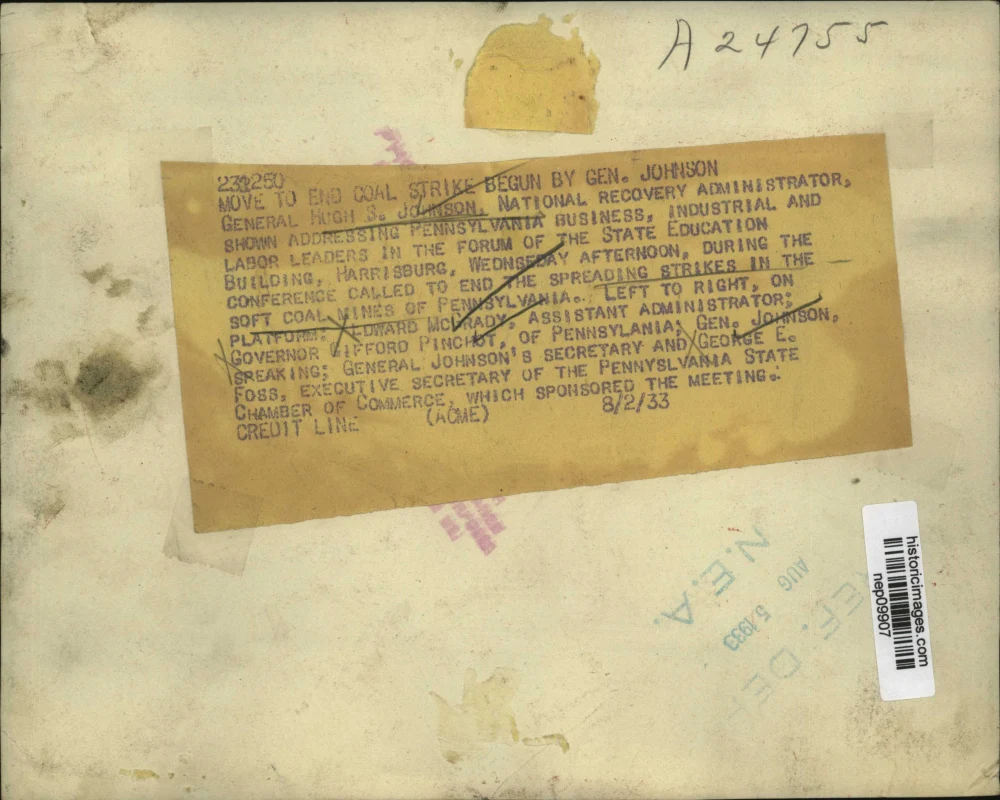 A 24755
231250
MOVE TO END COAL STRIKE BEGUN BY GEN. JOHNSON
GENERAL HUGH S. JOHNSON, NATIONAL RECOVERY ADMINISTRATOR,
SHOWN ADDRESSING PENNSYLVANIA BUSINESS, INDUSTRIAL AND
LABOR LEADERS IN THE FORUM OF THE STATE EDUCATION
BUILDING, HARRISBURG, WEDNSEDAY AFTERNOON, DURING THE
CONFERENCE CALLED TO END THE SPREADING STRIKES IN THE
SOFT COAL MINES OF PENNSYLVANIA. LEFT TO RIGHT, ON
PLATFORM: EDWARD MCGRADY, ASSISTANT ADMINISTRATOR;
GOVERNOR GIFFORD PINCHOT, OF PENNSYLANIA; GEN. JOHNSON,
SPEAKING; GENERAL JOHNSON'S SECRETARY AND GEORGE E.
FOSS, EXECUTIVE SECRETARY OF THE PENNYSLVANIA STATE
CHAMBER OF COMMERCE, WHICH SPONSORED THE MEETING.
CREDIT LINE (ACME) 8/2/33
N.E.A.
AUG 5 1933
REF. DE
historicimages.com
nep09907